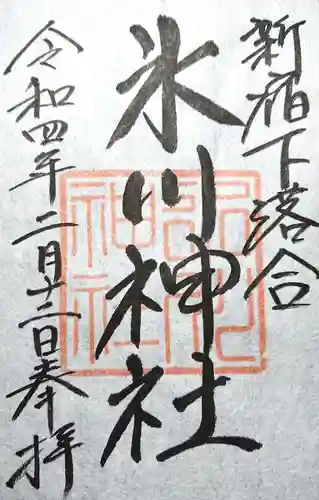 新宿下落合
氷川神社
令和四年二月十二日奉拝